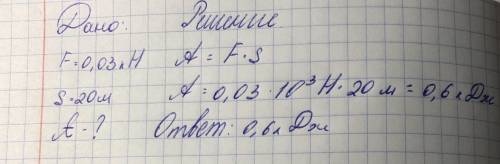 Дано: Решение.
F = 0,03кН A = F · S
S = 20м A = 0,03 · 10³ Н · 20 м = 0,6 кДж
A - ? Ответ: 0,6 кДж